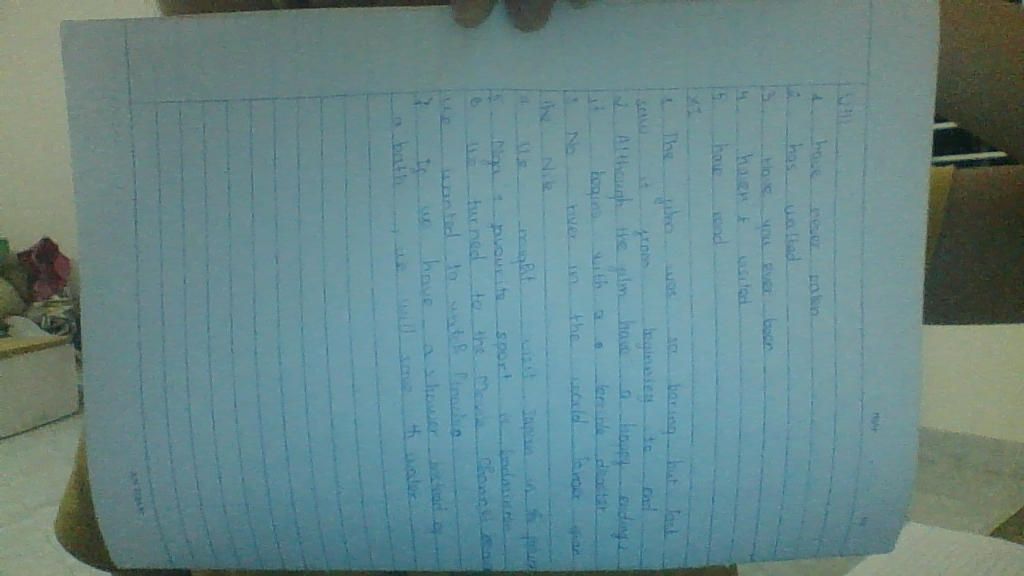 VIII
1. have never eaten
2. has worked
3. Have you ever been
4. haven't visited
5. have read
XI
1. The film was so boring but Lat
saw it from beginning to end
2. Although the film have a happy endings
it begins with a terrible disaster
3. No river in the world longer than
the Nile
4. We might visit Japan in the
5. Nga's favourite sport is badminton
6. We turned to the Movie Channel
we wanted to watch
7. If we have a shower instead of
a bath, we will save water